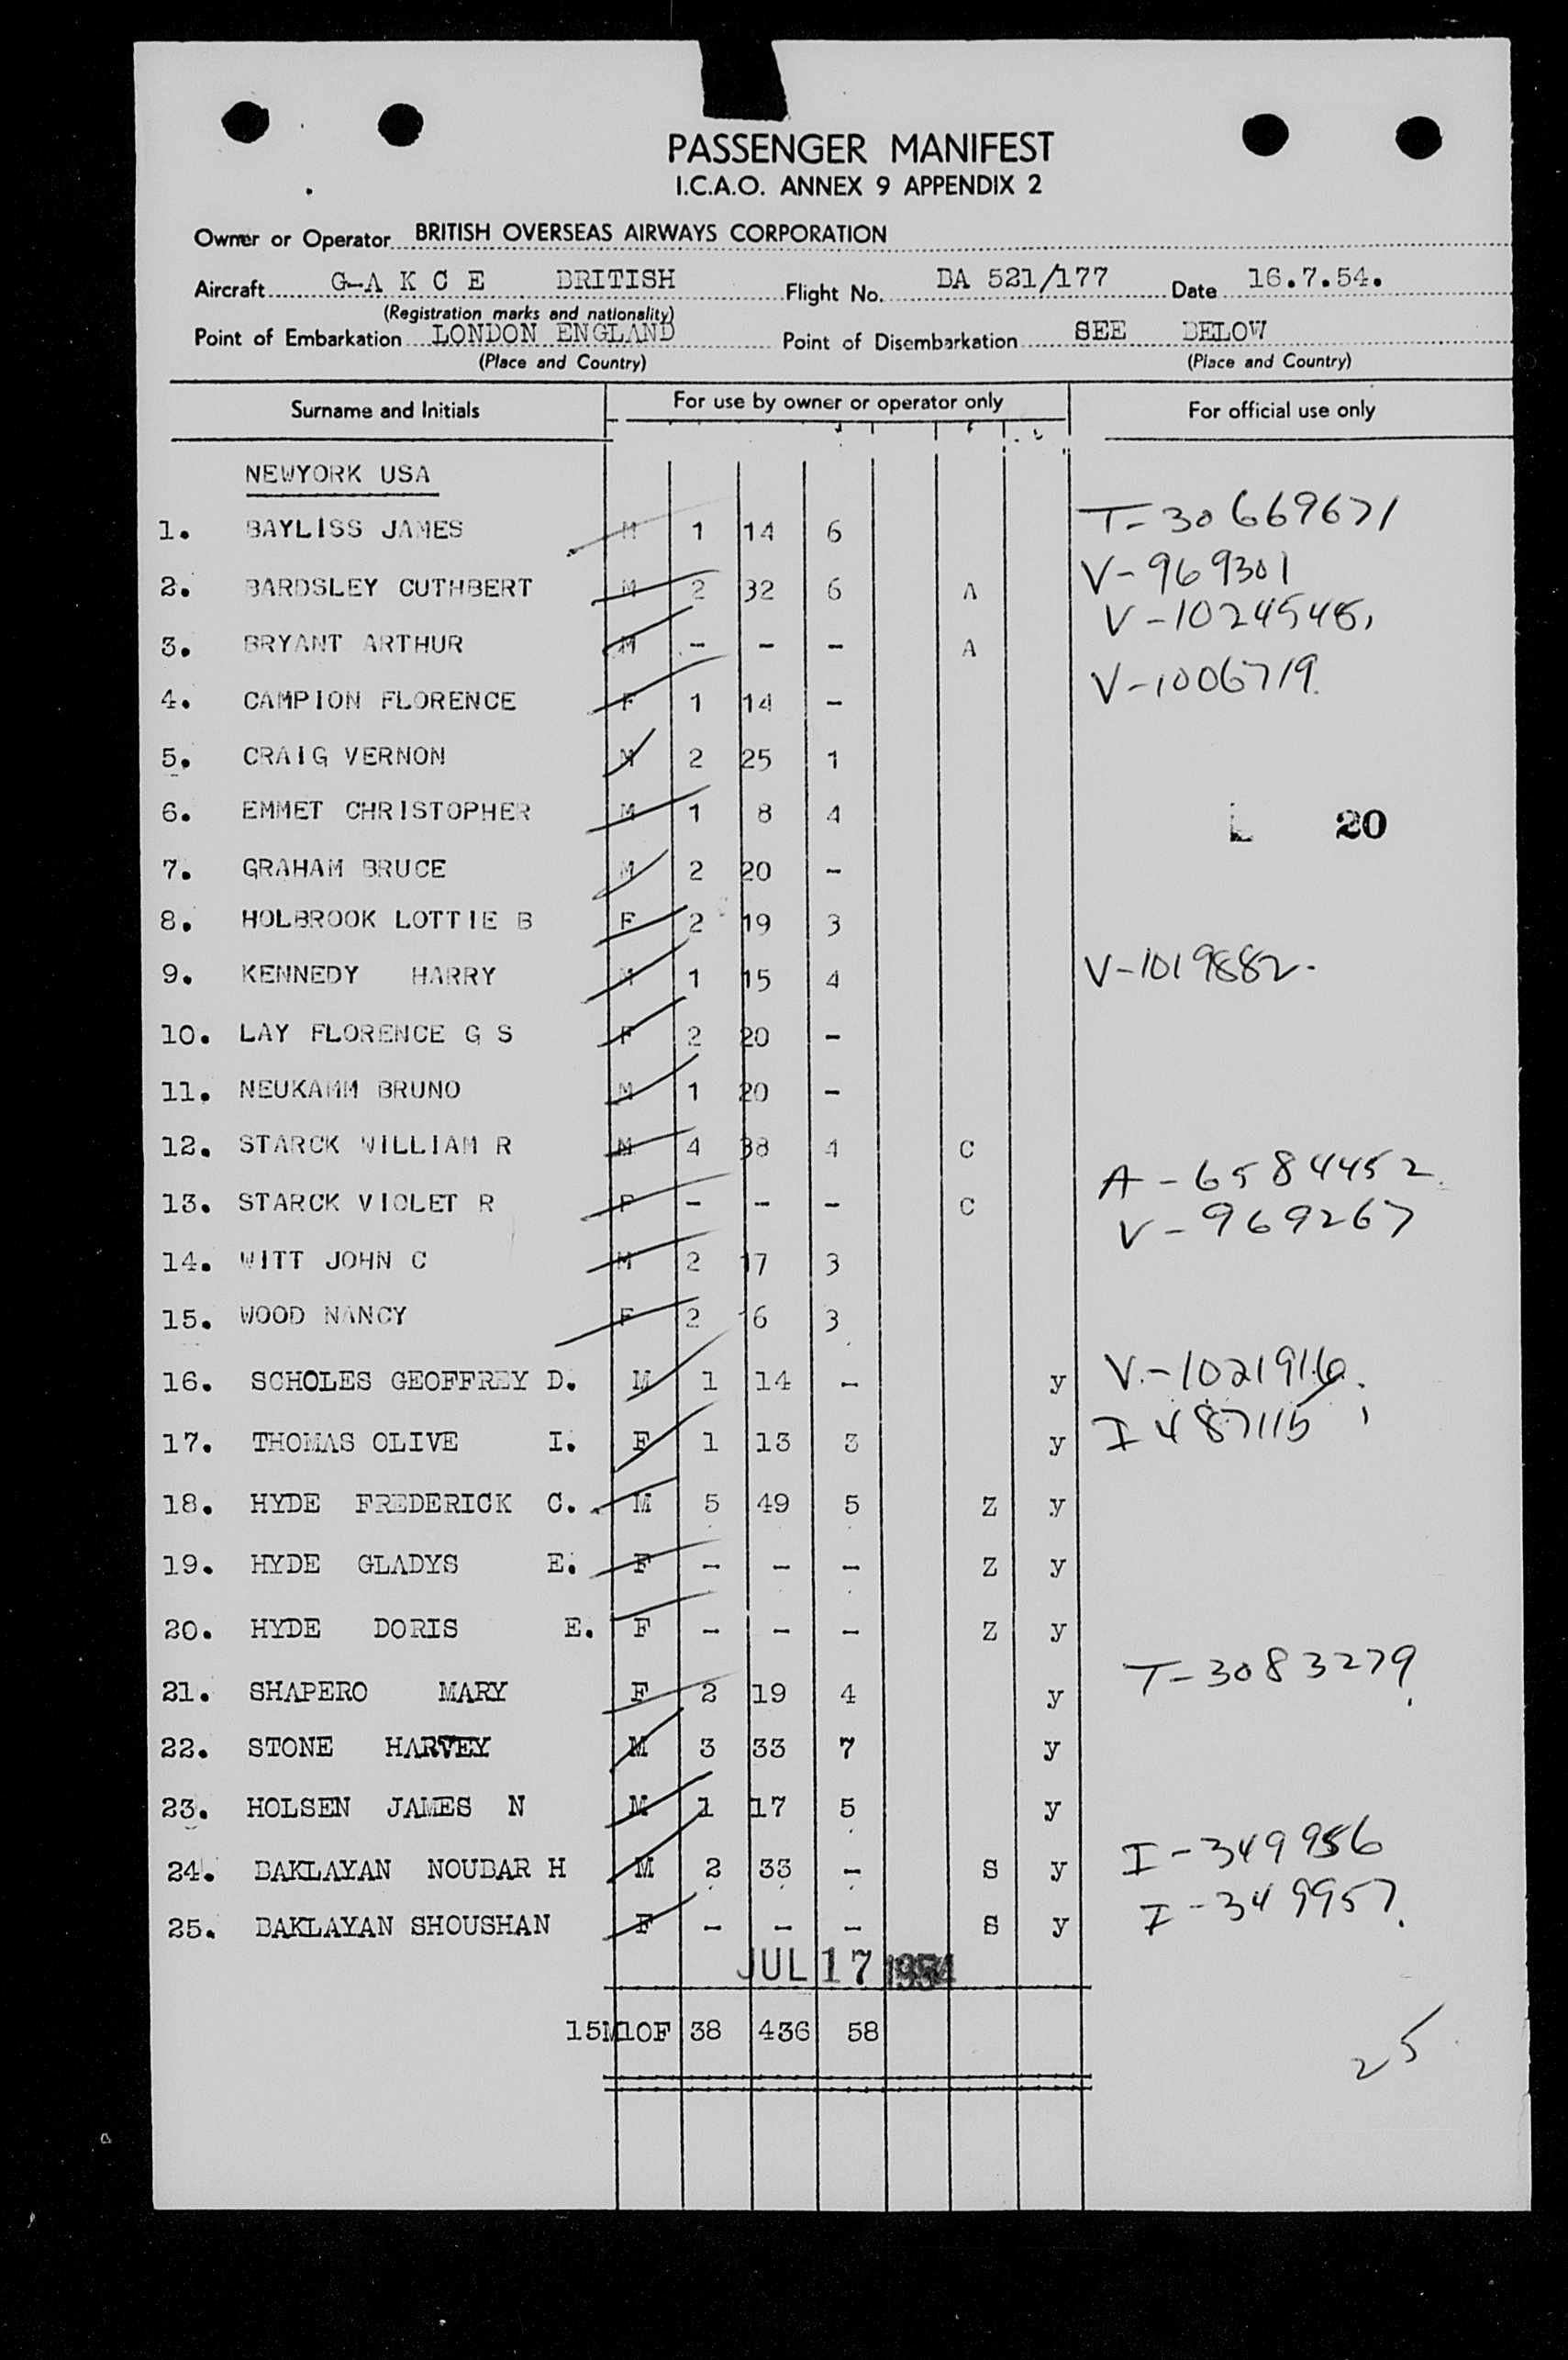 PASSENGER MANIFEST
I.C.A.O. ANNEX 9 APPENDIX 2
Owner or Operator BRITISH OVERSEAS AIRWAYS CORPORATION
Aircraft G-A K C E BRITISH Flight No. BA 521/177 Date 16.7.54.
(Registration marks and nationality)
Point of Embarkation LONDON ENGLAND Point of Disembarkation SEE BELOW
(Place and Country) (Place and Country)
Surname and Initials For use by owner or operator only For official use only
NEWYORK USA
1. BAYLISS JAMES M 1 14 6 T-30669671
2. BARDSLEY CUTHBERT M 2 32 6 A V-969301
3. BRYANT ARTHUR M - - - A
4. CAMPION FLORENCE F 1 14 - V-1006719.
5. CRAIG VERNON M 2 25 1
6. EMMET CHRISTOPHER M 1 8 4 L 20
7. GRAHAM BRUCE M 2 20 -
8. HOLBROOK LOTTIE B F 2 19 3
9. KENNEDY HARRY M 1 15 4 V-1019882.
10. LAY FLORENCE G S F 2 20 -
11. NEUKAMM BRUNO M 1 20 -
12. STARCK WILLIAM R M 4 38 4 C A-6584452.
13. STARCK VIOLET R F - - - C V-969267
14. WITT JOHN C M 2 17 3
15. WOOD NANCY F 2 16 3
16. SCHOLES GEOFFREY D. M 1 14 - y V-1021916.
17. THOMAS OLIVE I. F 1 13 3 y I 487115
18. HYDE FREDERICK C. M 5 49 5 Z y
19. HYDE GLADYS E. F - - - Z y
20. HYDE DORIS E. F - - - Z y
21. SHAPERO MARY F 2 19 4 y T-3083279.
22. STONE HARVEY M 3 33 7 y
23. HOLSEN JAMES N M 1 17 5 y
24. BAKLAYAN NOUBAR H M 2 33 - S y I-349956
25. BAKLAYAN SHOUSHAN F - - - S y I-349957.
JUL 17 1954
15M 10F 38 436 58
25